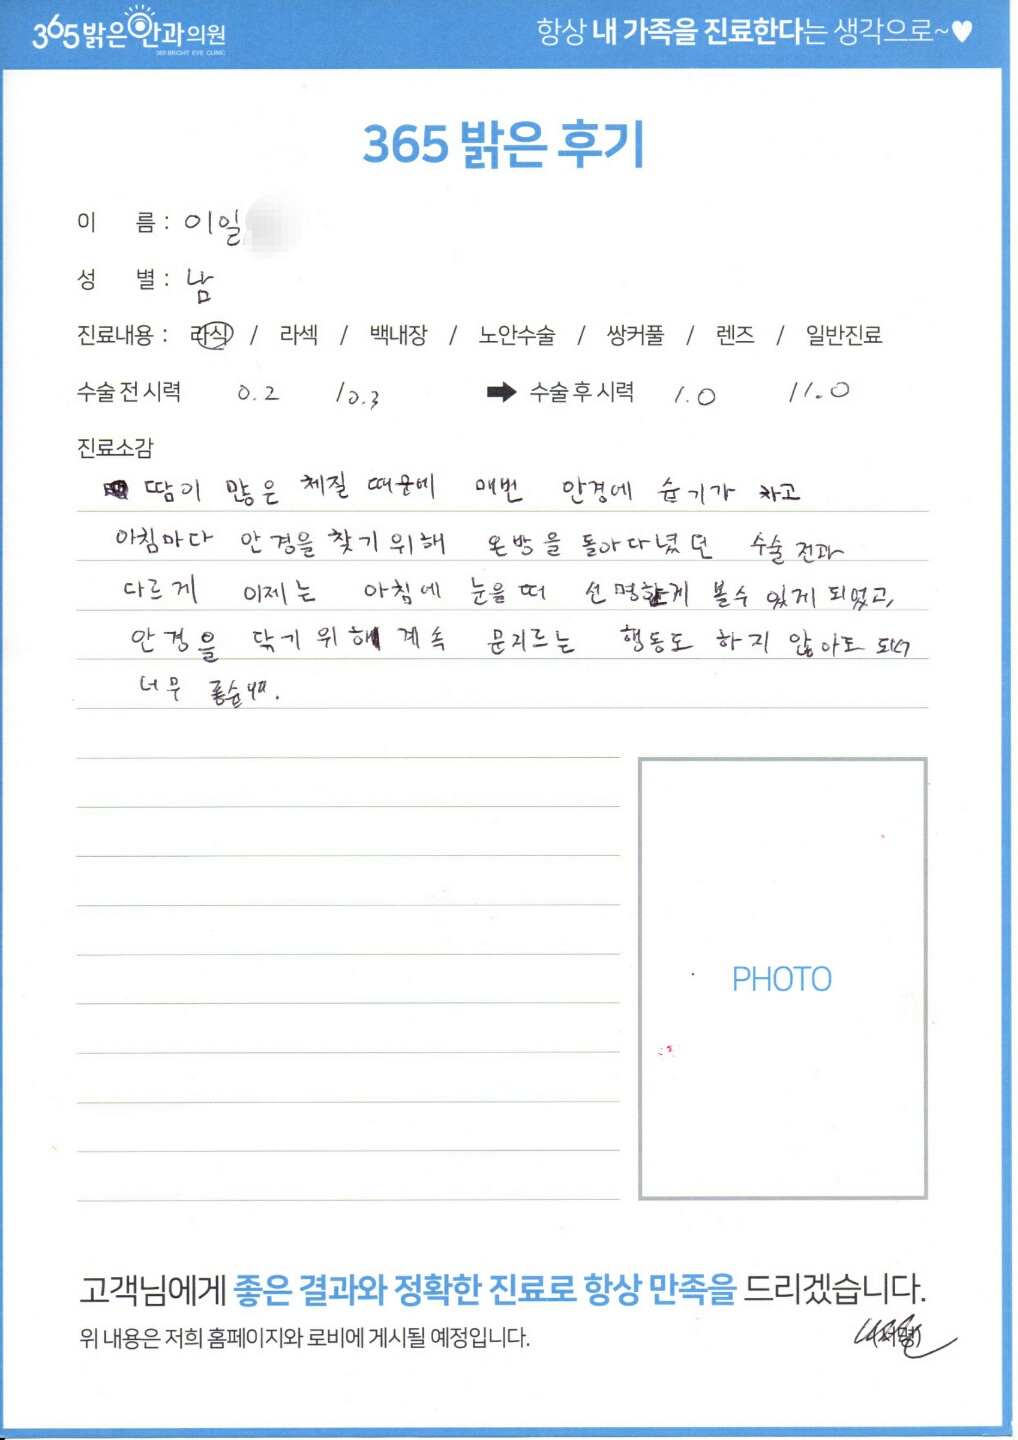 365밝은안과의원
365 BRIGHT EYE CLINIC
항상 내 가족을 진료한다는 생각으로~♥
365 밝은 후기
이 름 : 이일
성 별 : 남
진료내용 : 라식 / 라섹 / 백내장 / 노안수술 / 쌍커풀 / 렌즈 / 일반진료
수술 전 시력 0.2 / 0.3 ➡ 수술 후 시력 1.0 / 1.0
진료소감
땀이 많은 체질 때문에 매번 안경에 습기가 차고
아침마다 안경을 찾기 위해 온방을 돌아다녔던 수술 전과
다르게 이제는 아침에 눈을 떠 선명하게 볼수 있게 되었고,
안경을 닦기 위해 계속 문지르는 행동도 하지 않아도 되서
너무 좋습니다.
PHOTO
고객님에게 좋은 결과와 정확한 진료로 항상 만족을 드리겠습니다.
위 내용은 저희 홈페이지와 로비에 게시될 예정입니다.
(서명)